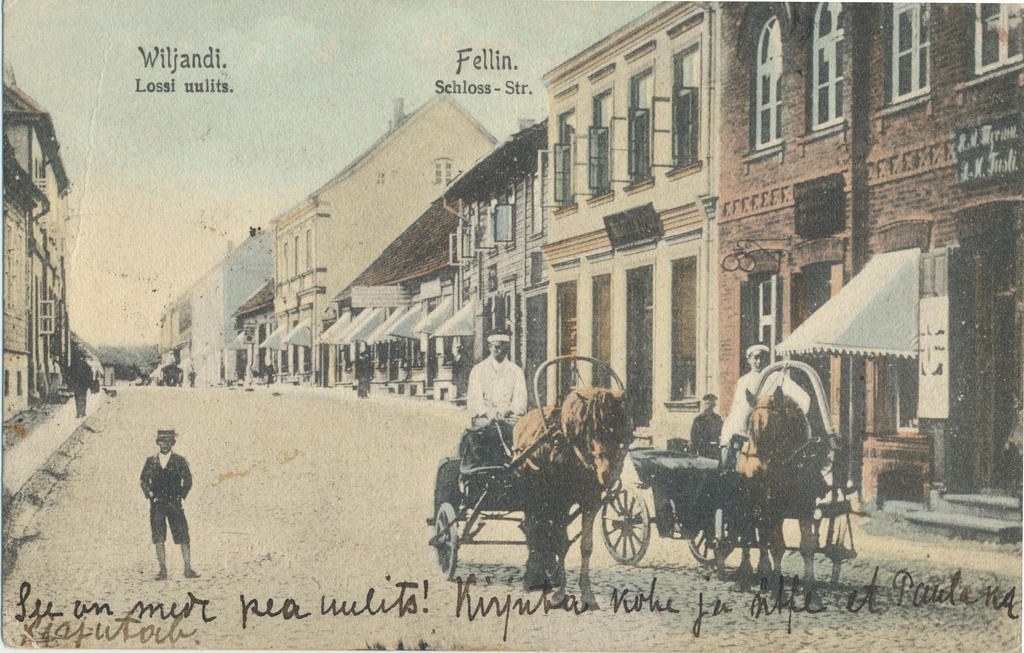 Wiljandi.
Lossi uulits.
Fellin.
Schloss-Str.
See on mede pea uulits! Kirjuta kohe ja ütle et Paula ka
kirjutab.